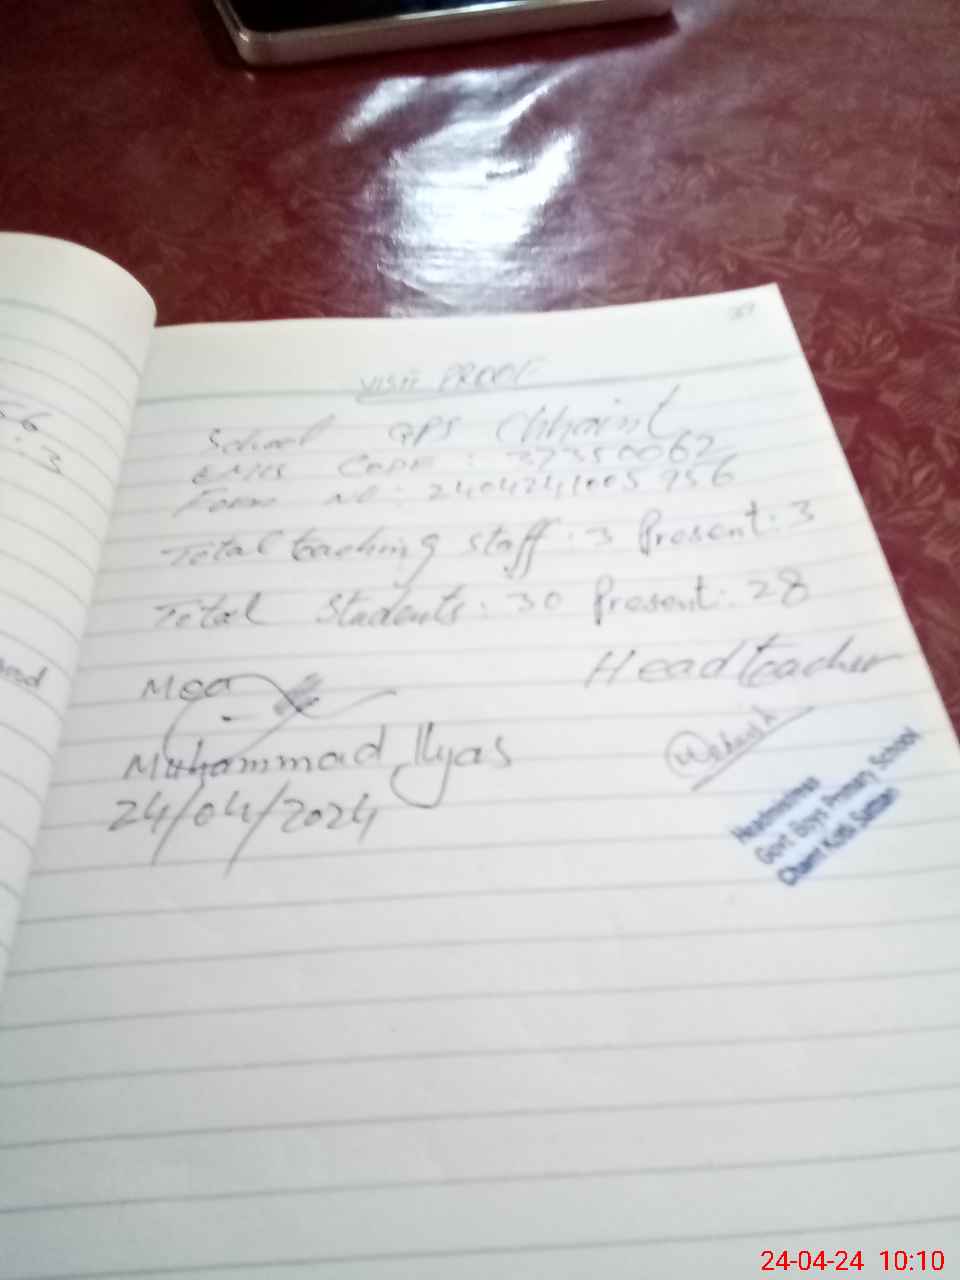 56
: 3
VISIT PROOF
School GPS Chhaint
EMIS Code : 37350062
Form No: 2404241005956
Total teaching staff : 3 Present : 3
Total Students : 30 Present : 28
Headteacher
Mea
Muhammad Ilyas
24/04/2024
Headmistress
Govt Boys Primary School
24-04-24 10:10